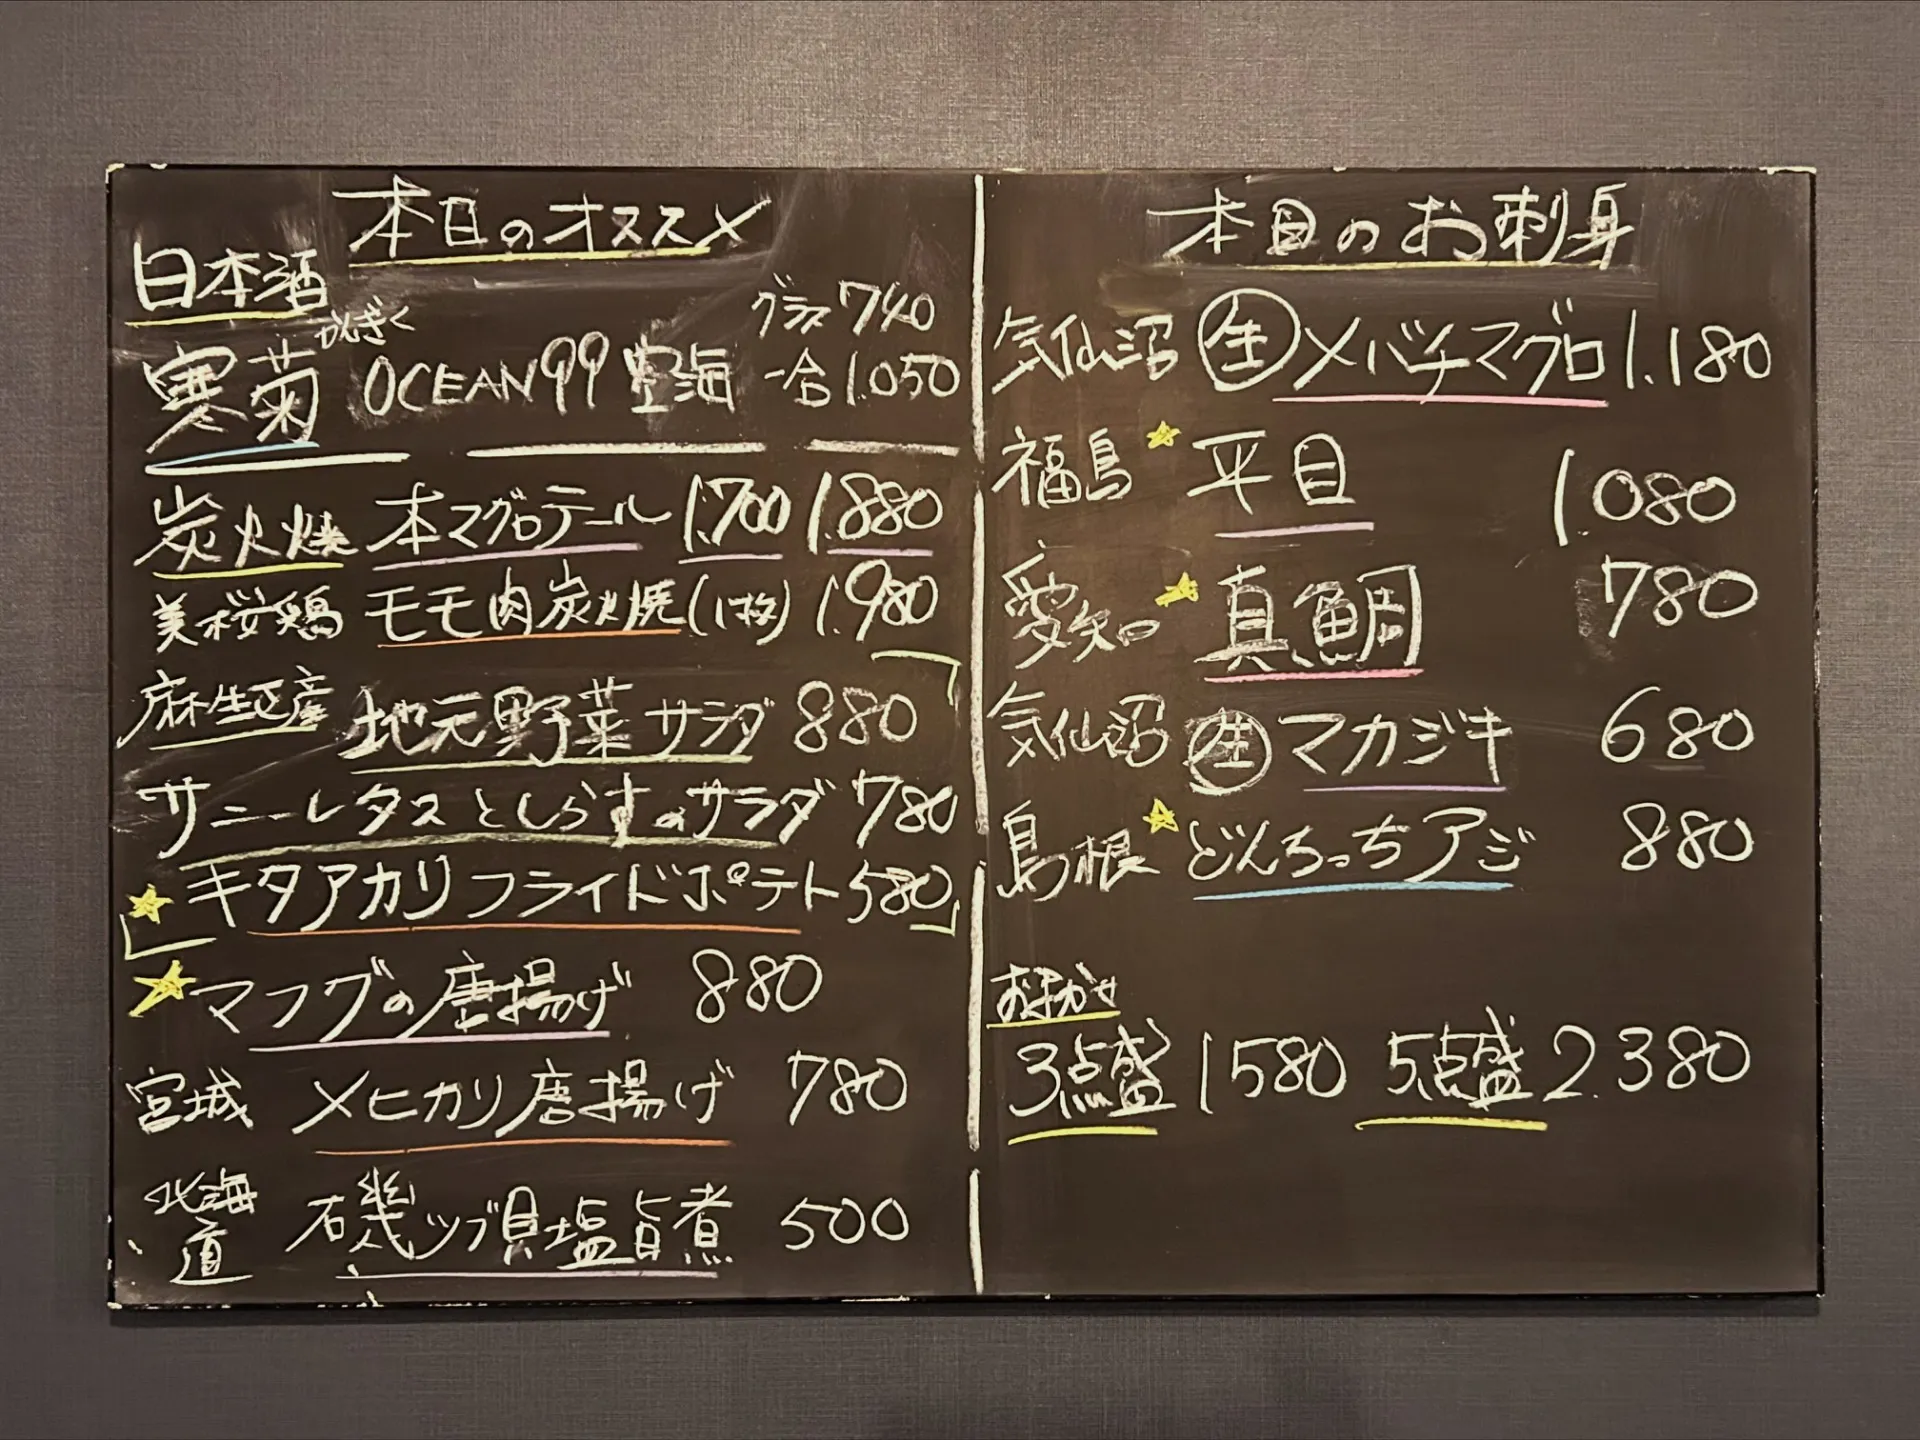 本日のオススメ
日本酒
かんぎく
寒菊 OCEAN99 空海 グラス 740
一合 1.050
炭火焼 本マグロテール 1.700 1.880
美桜鶏 モモ肉炭火焼(1枚) 1.980
麻生区産 地元野菜サラダ 880
サニーレタスとしらすのサラダ 780
★キタアカリフライドポテト 580
★マフグの唐揚げ 880
宮城 メヒカリ唐揚げ 780
北海道 磯ツブ貝塩旨煮 500
本日のお刺身
気仙沼 生 メバチマグロ 1.180
福島 ★平目 1.080
愛知 ★真鯛 780
気仙沼 生 マカジキ 680
島根 ★どんちっちアジ 880
おまかせ
3点盛 1580 5点盛 2.380